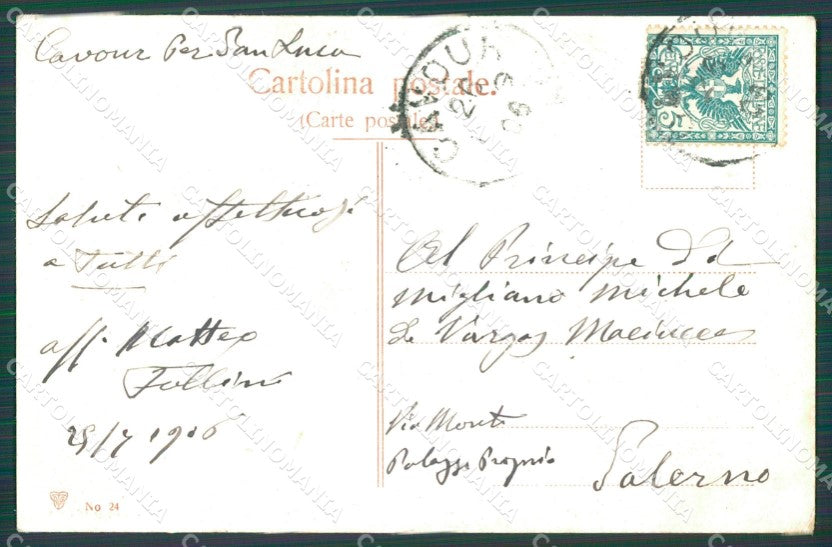 Cavour Per San Luca
Cartolina postale.
(Carte postale)
CAVOUR
Saluti affettuosi
a Tutti
aff. Matteo
25/7 1906
Al Principe Di
Migliano Michele
De Vargas Macciucca
Via Monti
Palazzo Proprio
Palermo
No 24
CARTOLINOMANIA